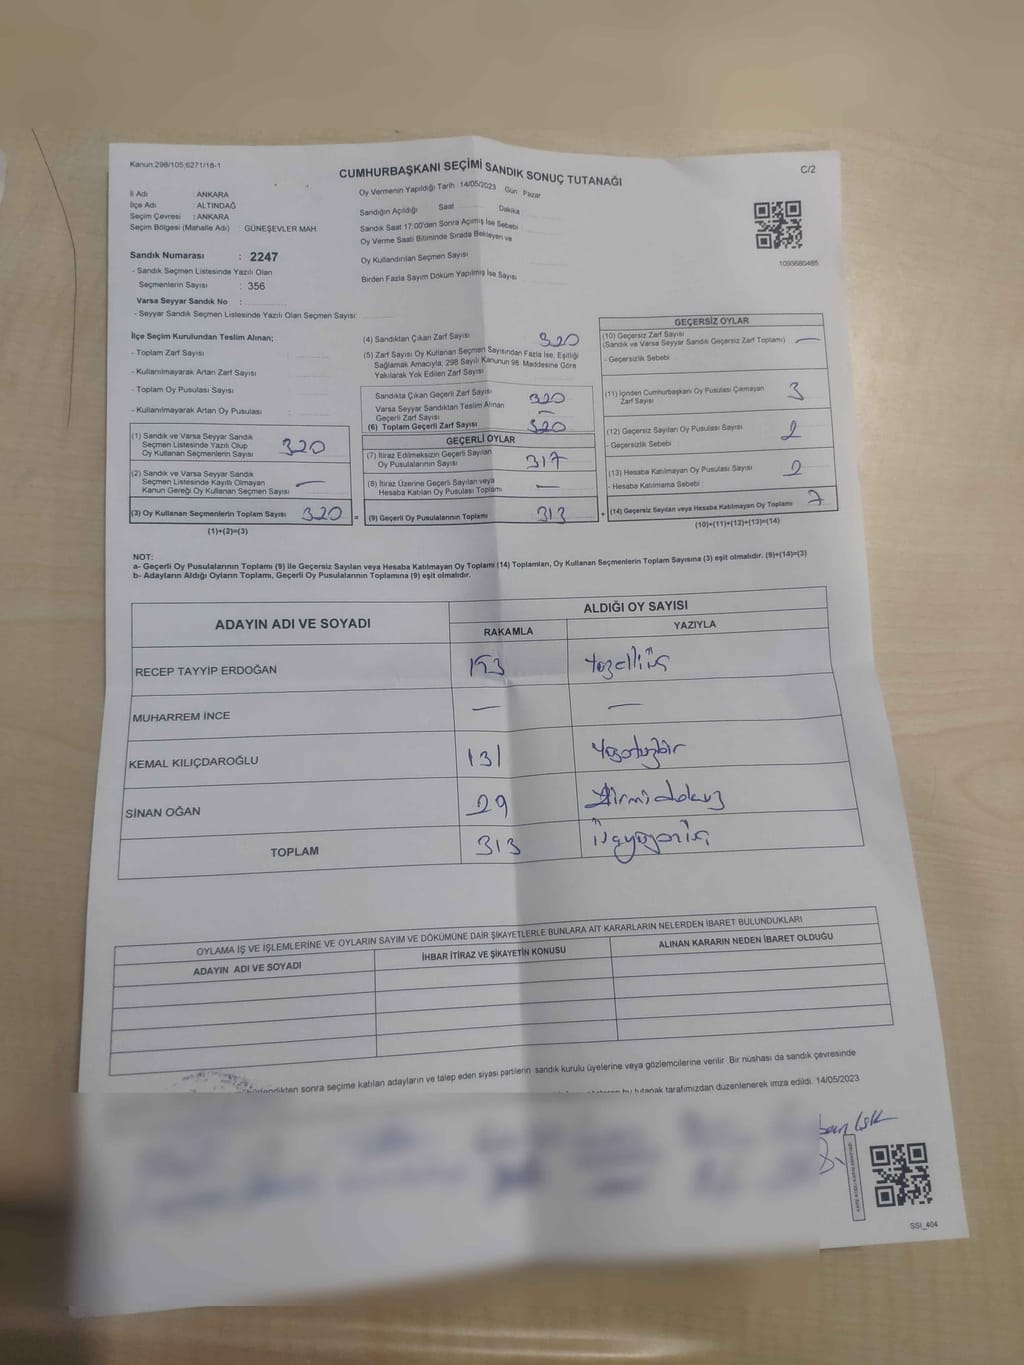 Kanun:298/105;6271/18-1
CUMHURBAŞKANI SEÇİMİ SANDIK SONUÇ TUTANAĞI
C/2
İl Adı ANKARA
İlçe Adı : ALTINDAĞ
Seçim Çevresi : ANKARA
Seçim Bölgesi (Mahalle Adı) GÜNEŞEVLER MAH
Sandık Numarası : 2247
- Sandık Seçmen Listesinde Yazılı Olan
Seçmenlerin Sayısı : 356
Varsa Seyyar Sandık No :
- Seyyar Sandık Seçmen Listesinde Yazılı Olan Seçmen Sayısı :
Oy Vermenin Yapıldığı Tarih :14/05/2023 Gün : Pazar
Sandığın Açıldığı Saat Dakika
Sandık Saat 17:00'den Sonra Açılmış İse Sebebi
Oy Verme Saati Bitiminde Sırada Bekleyen ve
Oy Kullandırılan Seçmen Sayısı
Birden Fazla Sayım Döküm Yapılmış İse Sayısı
1093680485
İlçe Seçim Kurulundan Teslim Alınan;
- Toplam Zarf Sayısı :
- Kullanılmayarak Artan Zarf Sayısı :
- Toplam Oy Pusulası Sayısı :
- Kullanılmayarak Artan Oy Pusulası :
(1) Sandık ve Varsa Seyyar Sandık
Seçmen Listesinde Yazılı Olup
Oy Kullanan Seçmenlerin Sayısı 320
(2) Sandık ve Varsa Seyyar Sandık
Seçmen Listesinde Kayıtlı Olmayan
Kanun Gereği Oy Kullanan Seçmen Sayısı —
(3) Oy Kullanan Seçmenlerin Toplam Sayısı 320 =
(1)+(2)=(3)
(4) Sandıktan Çıkan Zarf Sayısı 320
(5) Zarf Sayısı Oy Kullanan Seçmen Sayısından Fazla İse, Eşitliği
Sağlamak Amacıyla; 298 Sayılı Kanunun 98. Maddesine Göre
Yakılarak Yok Edilen Zarf Sayısı
Sandıkta Çıkan Geçerli Zarf Sayısı 320
Varsa Seyyar Sandıktan Teslim Alınan
Geçerli Zarf Sayısı —
(6) Toplam Geçerli Zarf Sayısı 320
GEÇERLİ OYLAR
(7) İtiraz Edilmeksizin Geçerli Sayılan
Oy Pusulalarının Sayısı 317
(8) İtiraz Üzerine Geçerli Sayılan veya
Hesaba Katılan Oy Pusulası Toplamı —
(9) Geçerli Oy Pusulalarının Toplamı 313 +
GEÇERSİZ OYLAR
(10) Geçersiz Zarf Sayısı
(Sandık ve Varsa Seyyar Sandık Geçersiz Zarf Toplamı) —
- Geçersizlik Sebebi :
(11) İçinden Cumhurbaşkanı Oy Pusulası Çıkmayan
Zarf Sayısı 3
(12) Geçersiz Sayılan Oy Pusulası Sayısı 2
- Geçersizlik Sebebi :
(13) Hesaba Katılmayan Oy Pusulası Sayısı 2
- Hesaba Katılmama Sebebi :
(14) Geçersiz Sayılan veya Hesaba Katılmayan Oy Toplamı 7
(10)+(11)+(12)+(13)=(14)
NOT:
a- Geçerli Oy Pusulalarının Toplamı (9) ile Geçersiz Sayılan veya Hesaba Katılmayan Oy Toplamı (14) Toplamları, Oy Kullanan Seçmenlerin Toplam Sayısına (3) eşit olmalıdır. (9)+(14)=(3)
b- Adayların Aldığı Oyların Toplamı, Geçerli Oy Pusulalarının Toplamına (9) eşit olmalıdır.
ADAYIN ADI VE SOYADI
ALDIĞI OY SAYISI
RAKAMLA YAZIYLA
RECEP TAYYİP ERDOĞAN 153 Yüzelliüç
MUHARREM İNCE — —
KEMAL KILIÇDAROĞLU 131 Yüzotuzbir
SİNAN OĞAN 29 Yirmidokuz
TOPLAM 313 Üçyüzonüç
OYLAMA İŞ VE İŞLEMLERİNE VE OYLARIN SAYIM VE DÖKÜMÜNE DAİR ŞİKAYETLERLE BUNLARA AİT KARARLARIN NELERDEN İBARET BULUNDUKLARI
ADAYIN ADI VE SOYADI İHBAR İTİRAZ VE ŞİKAYETİN KONUSU ALINAN KARARIN NEDEN İBARET OLDUĞU
sonra seçime katılan adayların ve talep eden siyasi partilerin sandık kurulu üyelerine veya gözlemcilerine verilir. Bir nüshası da sandık çevresinde
bu tutanak tarafımızdan düzenlenerek imza edildi. 14/05/2023
SSI_404